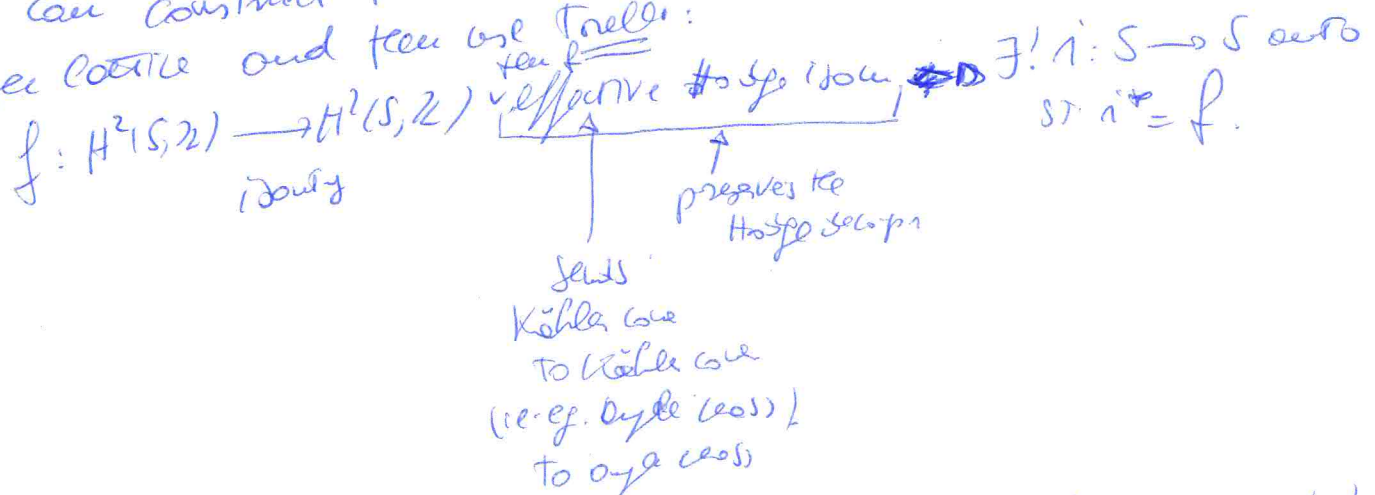 can construct
lattice and then use Torelli:
then f
f : H²(S,Z) ⟶ H²(S,Z) effective Hodge isom, ∃! i : S → S auto
isometry
st. i* = f.
preserves the
Hodge decomp
sends
Kähler cone
to Kähler cone
(i.e. eg. ample class)
to ample class